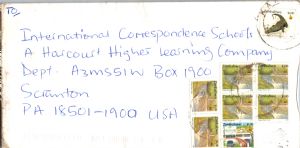 TO,
International Correspondence Schools
A Harcourt Higher Learning Company
Dept. AZMS51W Box 1900
Scranton
PA 18501-1900 USA